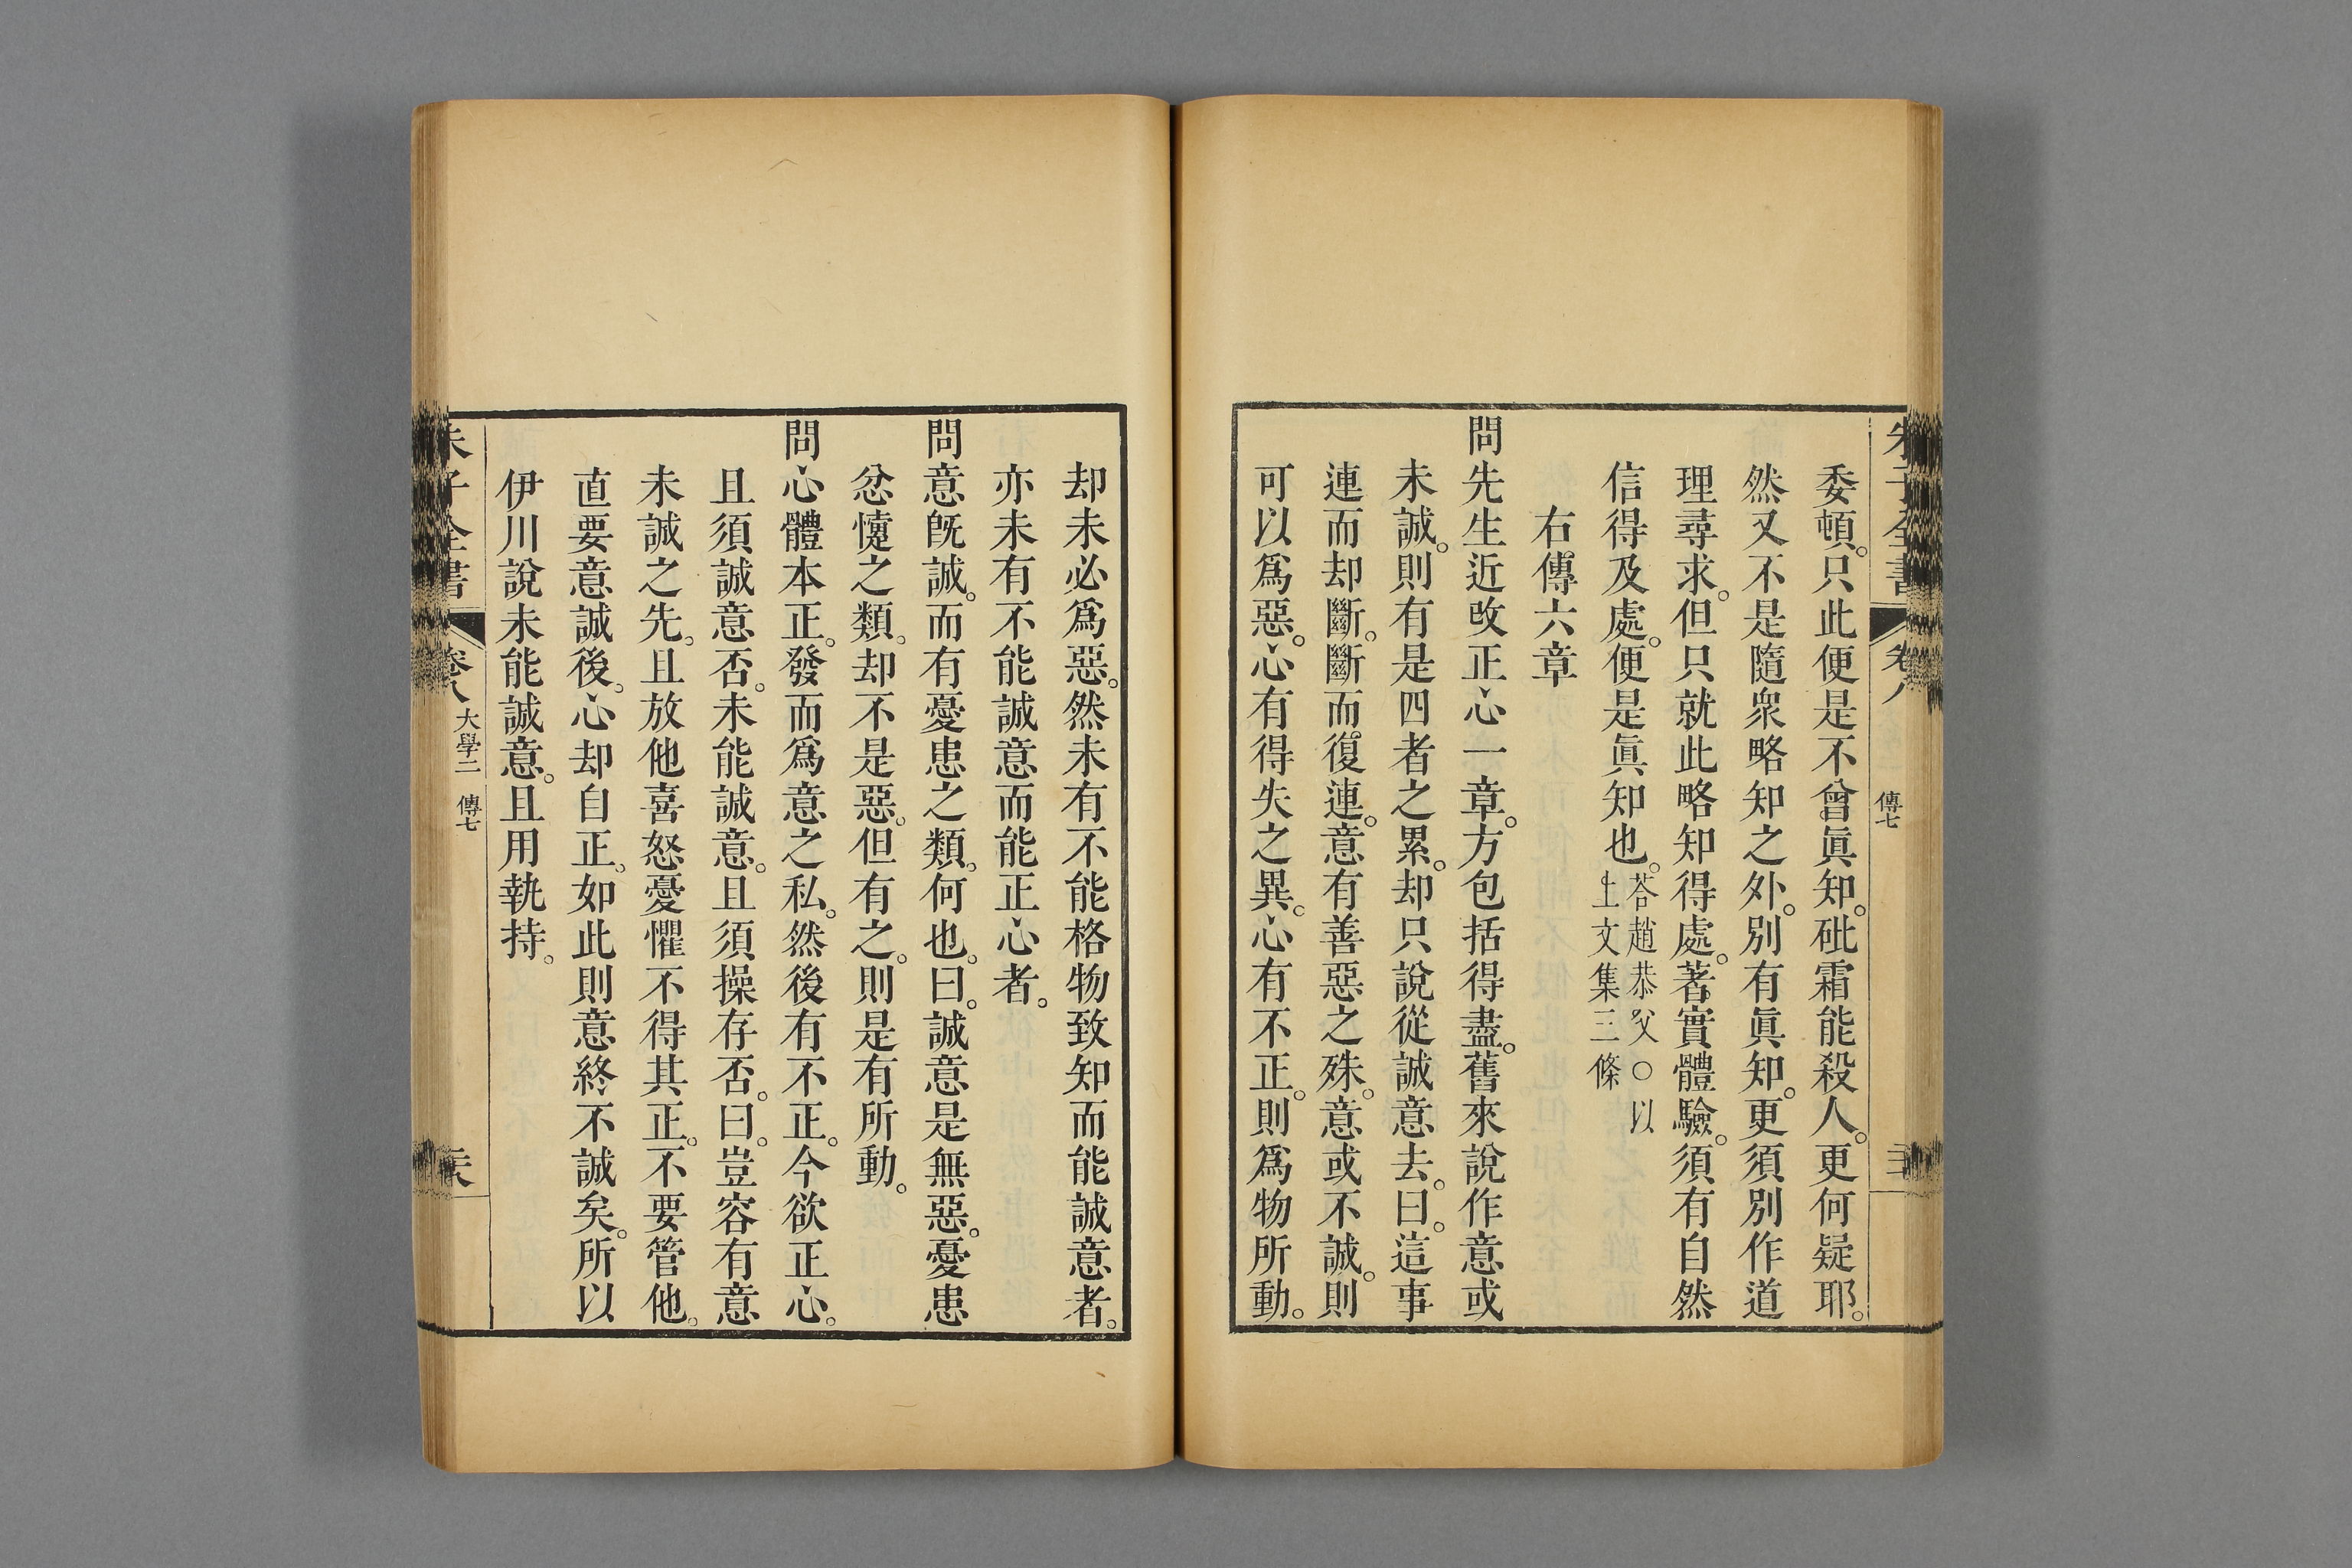 朱子全書 卷八 傳七
委頓。只此便是不曾眞知。砒霜能殺人。更何疑耶。
然又不是隨衆略知之外。別有眞知。更須別作道
理尋求。但只就此略知得處。著實體驗。須有自然
信得及處。便是眞知也。答趙恭父○以
上文集三條
右傳六章
問先生近改正心一章。方包括得盡。舊來說作意或
未誠。則有是四者之累。却只說從誠意去。曰。這事
連而却斷。斷而復連。意有善惡之殊。意或不誠。則
可以爲惡。心有得失之異。心有不正。則爲物所動。
却未必爲惡。然未有不能格物致知而能誠意者。
亦未有不能誠意而能正心者。
問意旣誠。而有憂患之類。何也。曰。誠意是無惡。憂患
忿懥之類。却不是惡。但有之。則是有所動。
問心體本正。發而爲意之私。然後有不正。今欲正心。
且須誠意否。未能誠意。且須操存否。曰。豈容有意
未誠之先。且放他喜怒憂懼不得其正。不要管他。
直要意誠後。心却自正。如此則意終不誠矣。所以
伊川說未能誠意。且用執持。
朱子全書 卷八 大學二 傳七